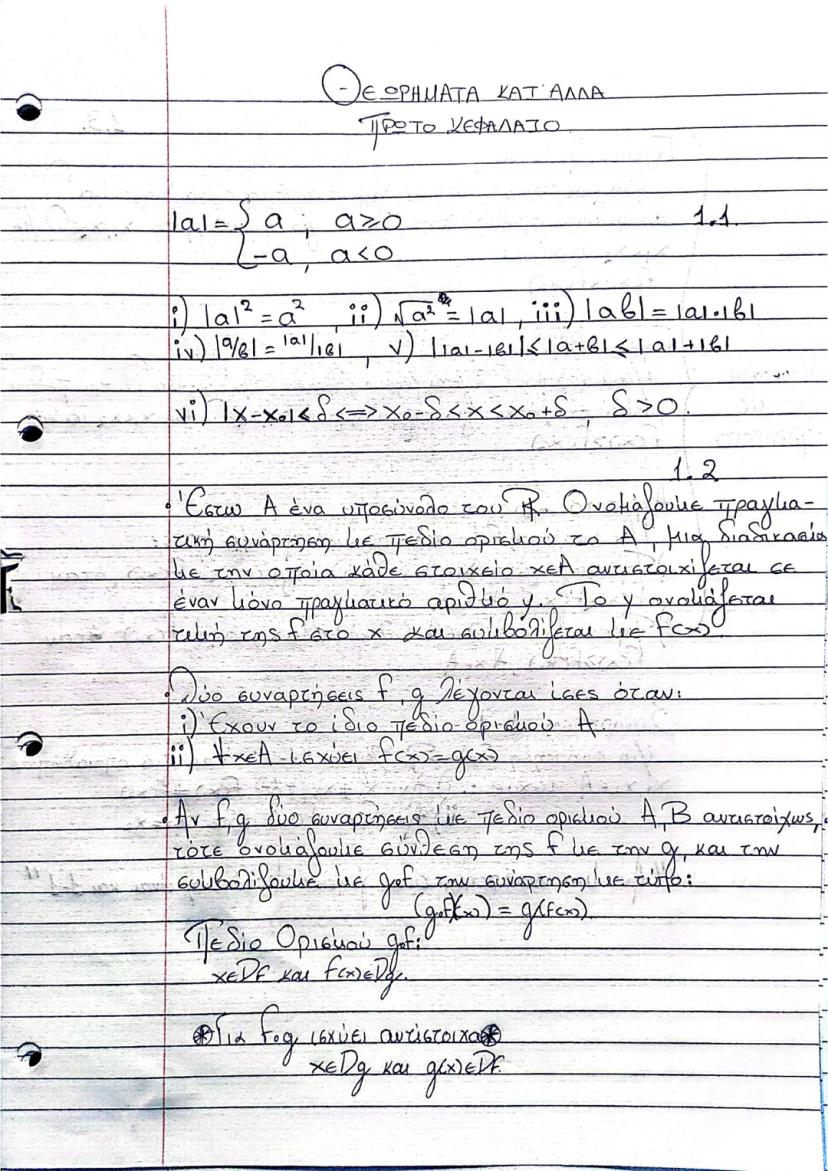 ΘΕΩΡΗΜΑΤΑ ΚΑΤ' ΑΛΛΑ
ΠΡΩΤΟ ΚΕΦΑΛΑΙΟ
1.1
|α| = { α , α≥0
-α , α<0
i) |α|² = α² , ii) √α² = |α| , iii) |αβ| = |α|·|β|
iv) |α/β| = |α|/|β| , v) ||α|-|β||≤|α+β|≤|α|+|β|
vi) |x-x₀|<δ <=> x₀-δ<x<x₀+δ , δ>0.
1.2
• Έστω Α ένα υποσύνολο του ℝ. Ονομάζουμε πραγμα-
τική συνάρτηση με πεδίο ορισμού το Α, μια διαδικασία
με την οποία κάθε στοιχείο x∈A αντιστοιχίζεται σε
έναν μόνο πραγματικό αριθμό y. Το y ονομάζεται
τιμή της f στο x και συμβολίζεται με f(x)
• Δύο συναρτήσεις f, g λέγονται ίσες όταν:
i) Έχουν το ίδιο πεδίο ορισμού Α
ii) ∀x∈A ισχύει f(x)=g(x)
• Αν f,g δύο συναρτήσεις με πεδίο ορισμού Α,Β αντιστοίχως,
τότε ονομάζουμε σύνθεση της f με την g, και την
συμβολίζουμε με gof την συνάρτηση με τύπο:
(gof)(x) = g(f(x))
Πεδίο Ορισμού gof:
x∈Df και f(x)∈Dg.
⊛Για fog ισχύει αντίστοιχα⊛
x∈Dg και g(x)∈Df.